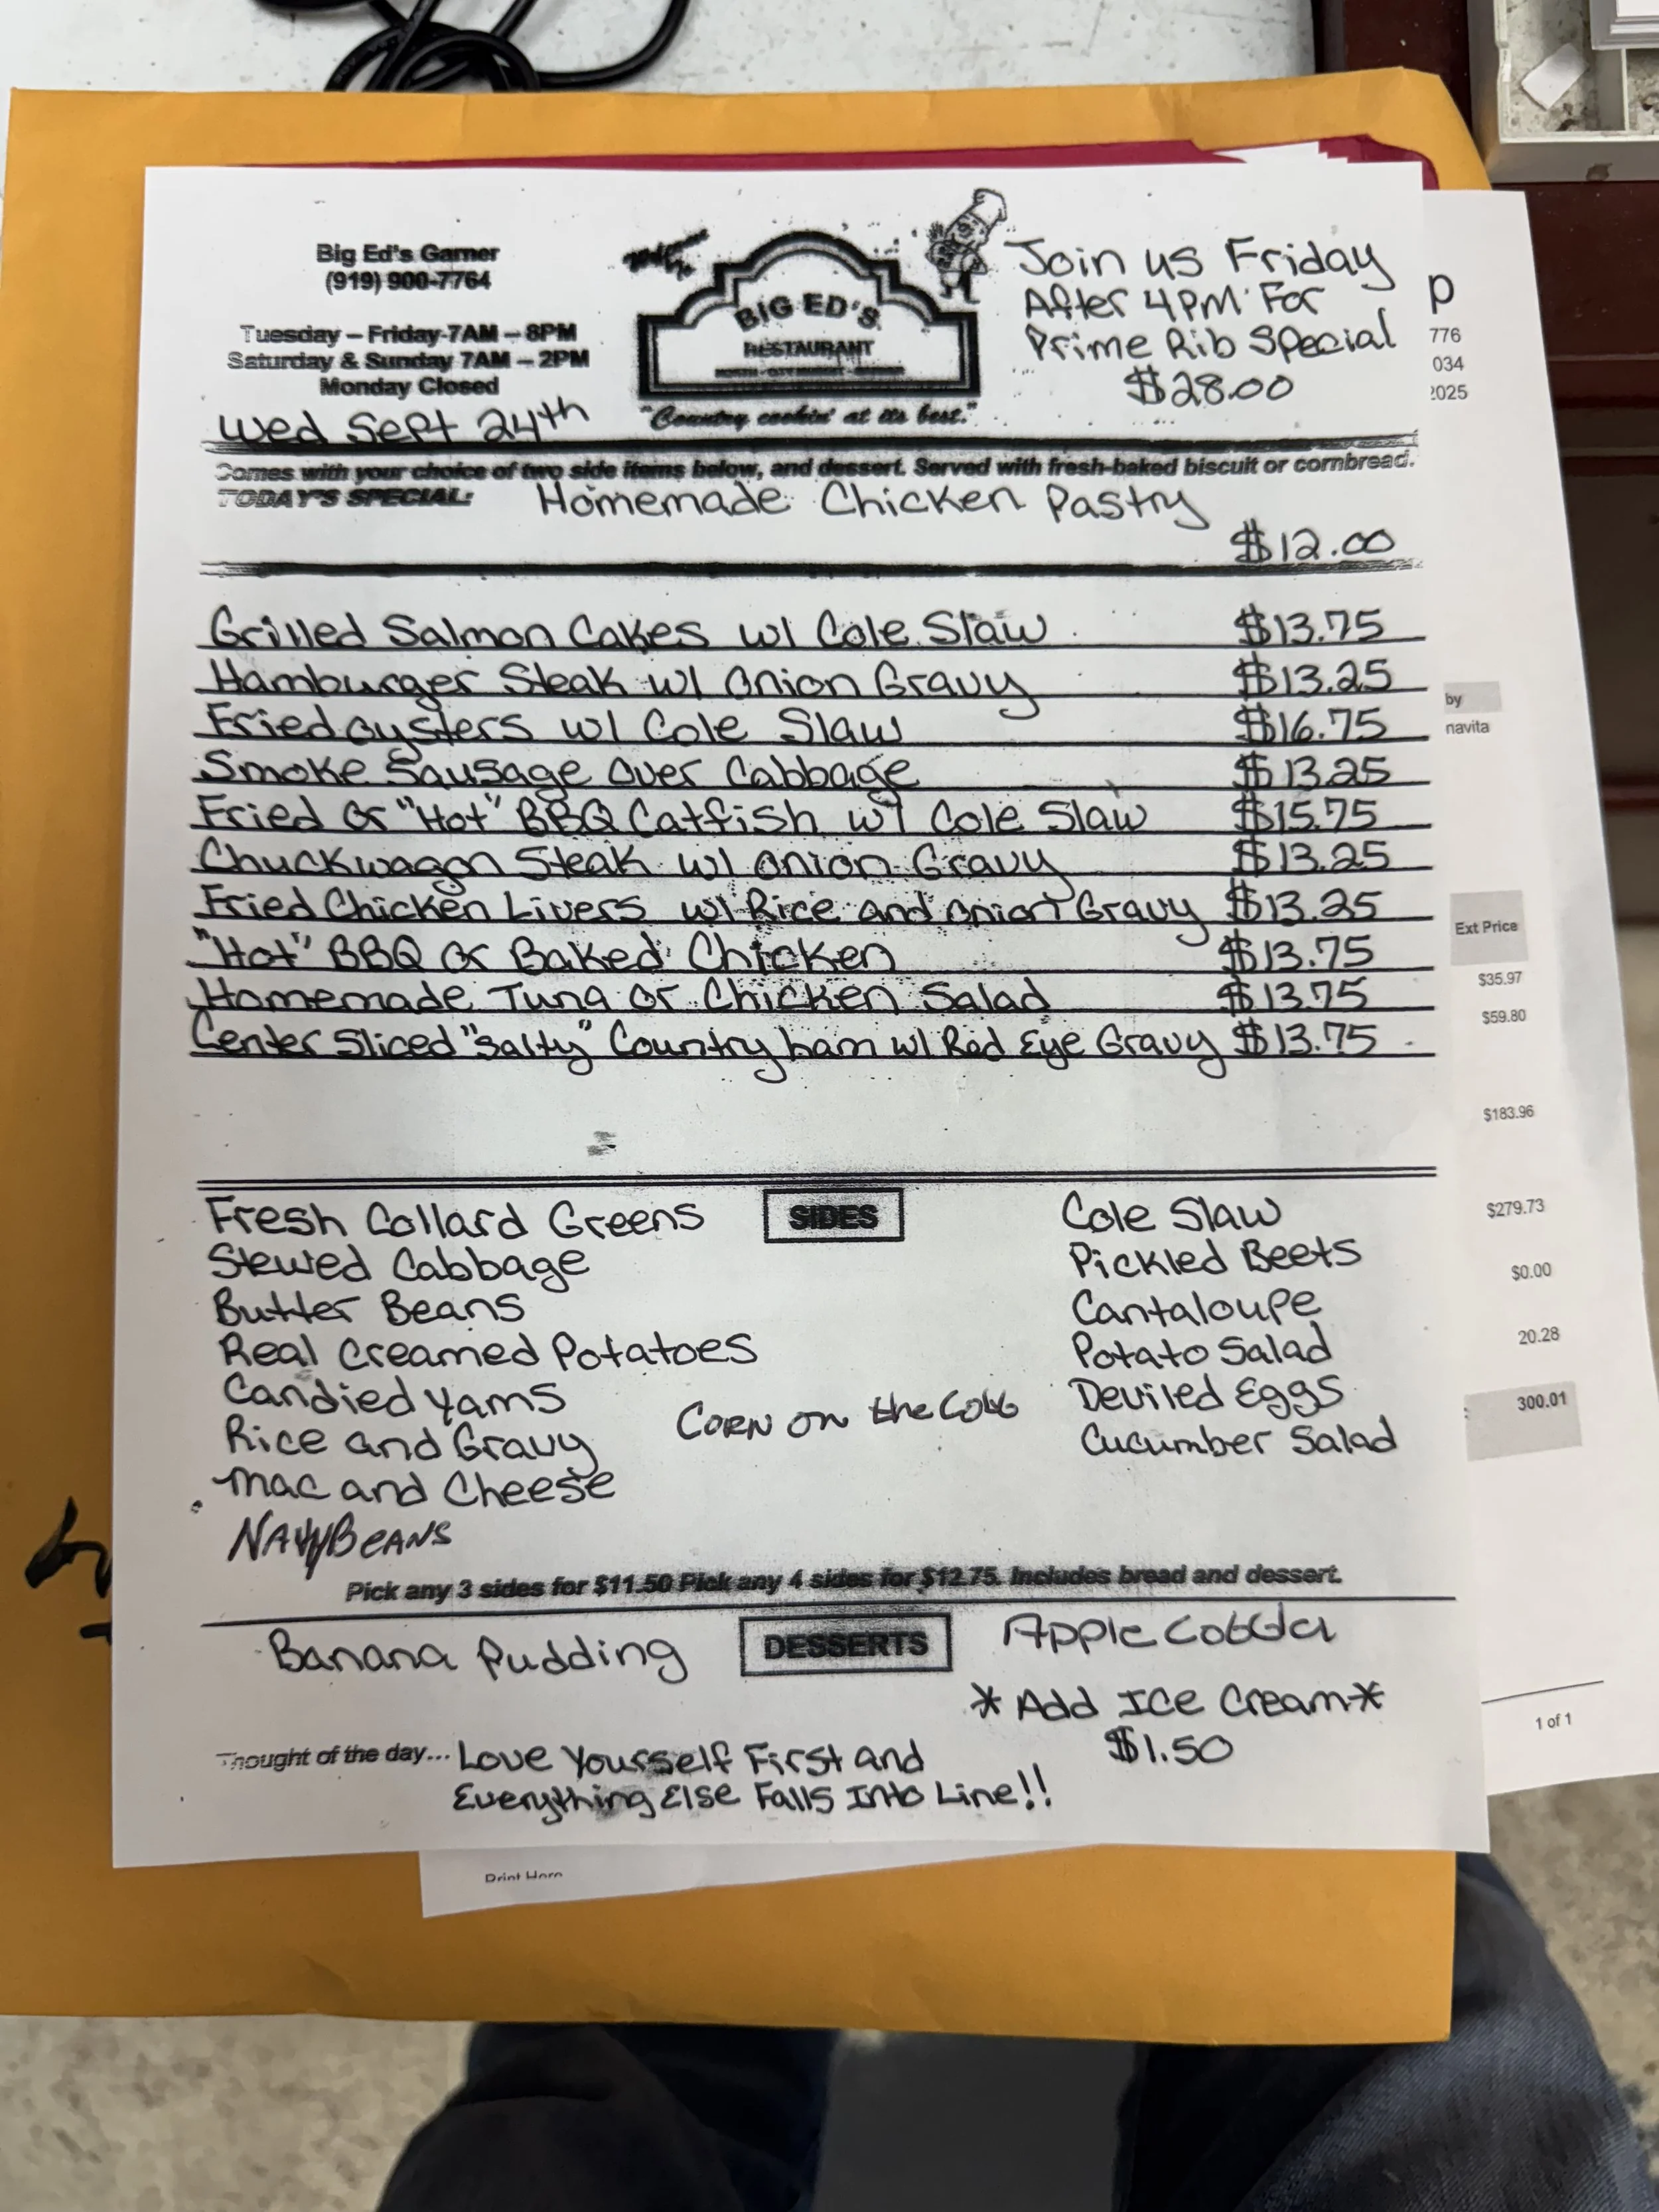 Big Ed's Garner
(919) 900-7764
Tuesday – Friday 7AM – 8PM
Saturday & Sunday 7AM – 2PM
Monday Closed
Wed Sept 24th
BIG ED'S
RESTAURANT
"Country cookin' at its best."
Join us Friday
After 4PM For
Prime Rib Special
$28.00
Comes with your choice of two side items below, and dessert. Served with fresh-baked biscuit or cornbread.
TODAY'S SPECIAL: Homemade Chicken Pastry
$12.00
Grilled Salmon Cakes w/ Cole Slaw $13.75
Hamburger Steak w/ Onion Gravy $13.25
Fried Oysters w/ Cole Slaw $16.75
Smoke Sausage Over Cabbage $13.25
Fried Or "Hot" BBQ Catfish w/ Cole Slaw $15.75
Chuckwagon Steak w/ Onion Gravy $13.25
Fried Chicken Livers w/ Rice and Onion Gravy $13.25
"Hot" BBQ Or Baked Chicken $13.75
Homemade Tuna Or Chicken Salad $13.75
Center Sliced "Salty" Country ham w/ Red Eye Gravy $13.75
SIDES
Fresh Collard Greens
Stewed Cabbage
Butter Beans
Real Creamed Potatoes
Candied Yams
Rice and Gravy
Mac and Cheese
Navy Beans
Corn on the Cobb
Cole Slaw
Pickled Beets
Cantaloupe
Potato Salad
Deviled Eggs
Cucumber Salad
Pick any 3 sides for $11.50 Pick any 4 sides for $12.75. Includes bread and dessert.
DESSERTS
Banana Pudding
Apple Cobbler
*Add Ice Cream*
$1.50
Thought of the day... Love Yourself First and
Everything Else Falls Into Line!!
p
776
034
2025
by
navita
Ext Price
$35.97
$59.80
$183.96
$279.73
$0.00
20.28
300.01
1 of 1
Print Here